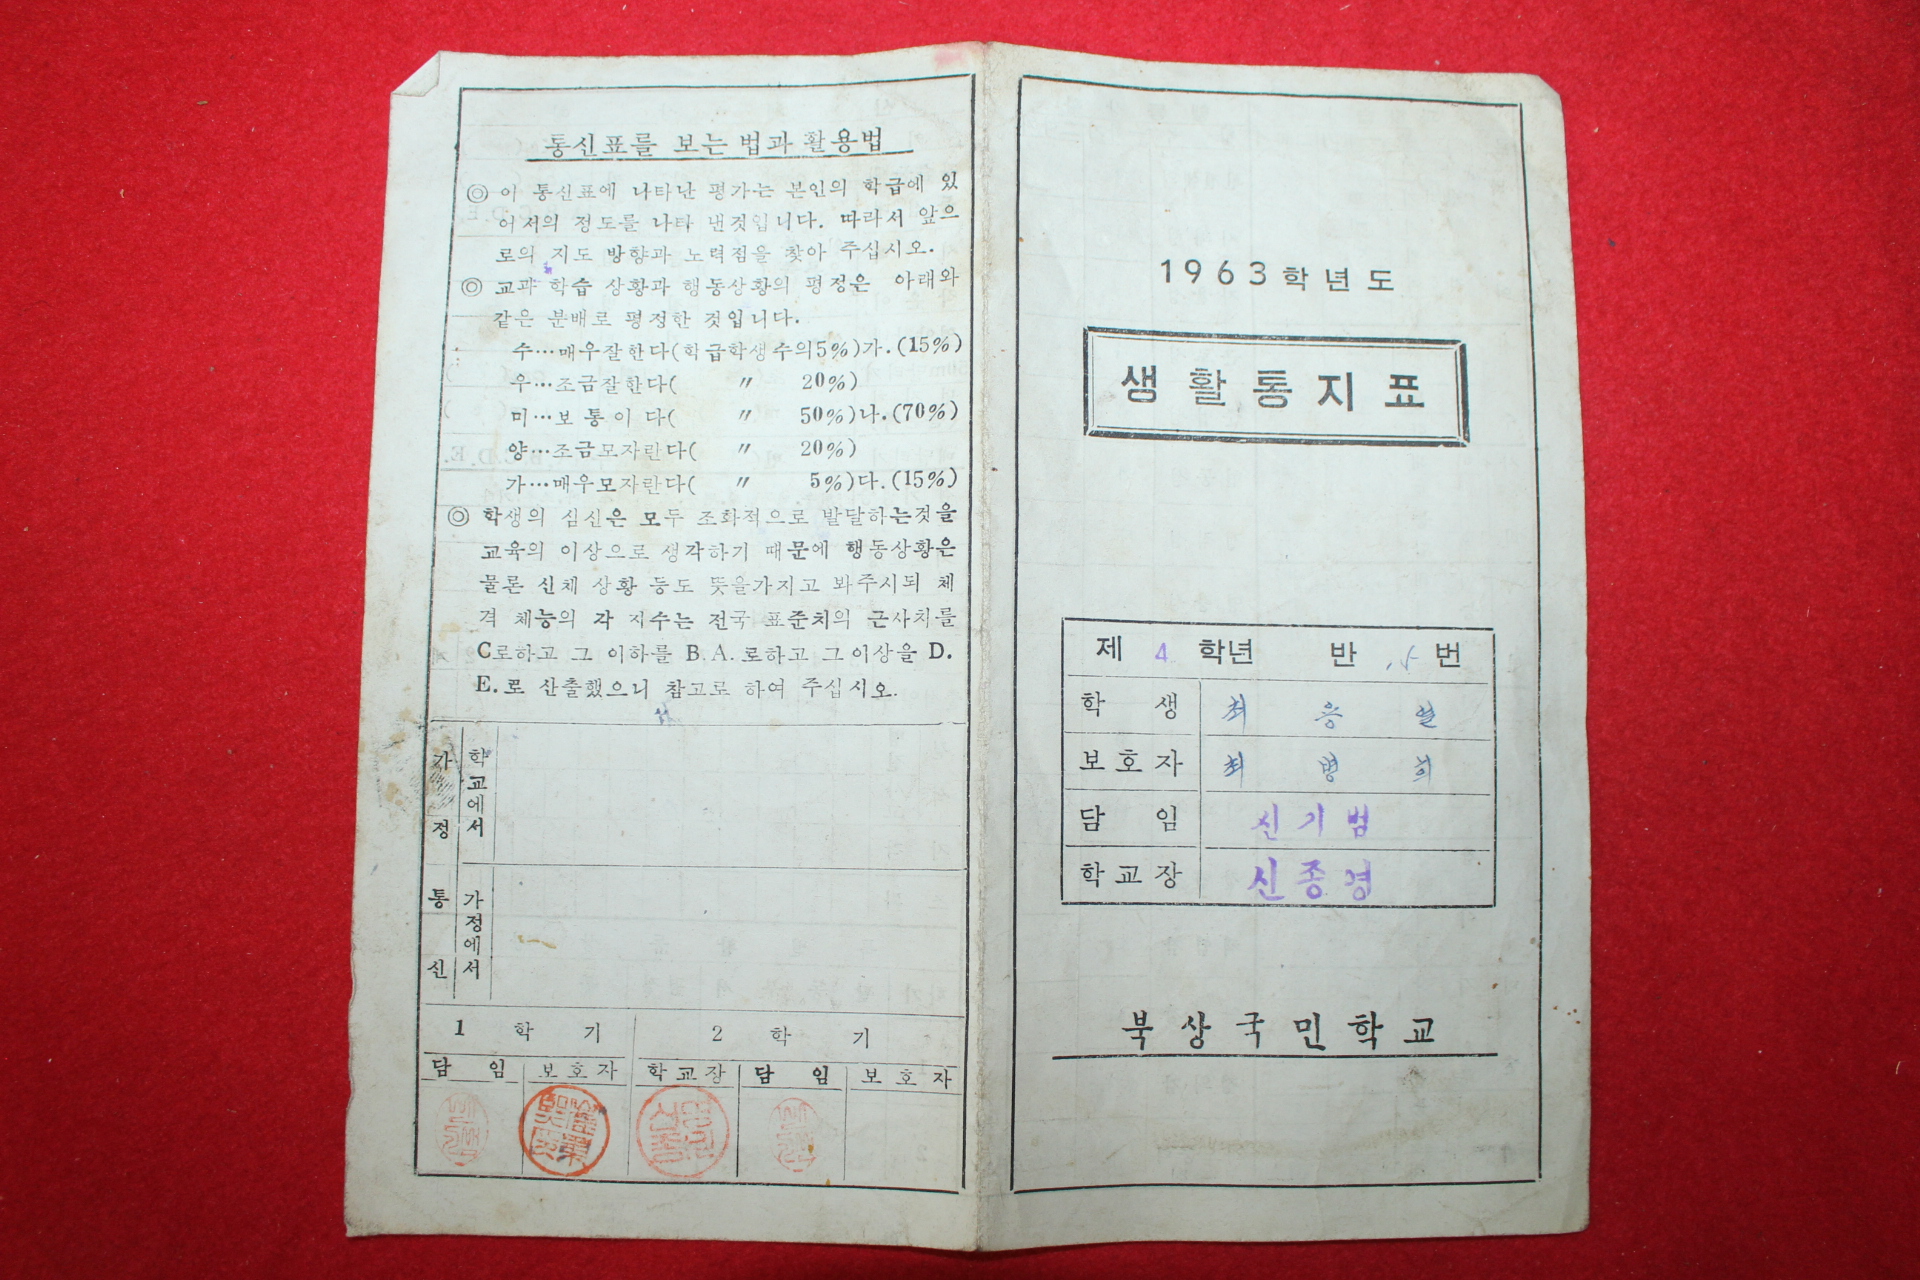 통신표를 보는 법과 활용법
◎ 이 통신표에 나타난 평가는 본인의 학급에 있
어서의 정도를 나타 낸것입니다. 따라서 앞으
로의 지도 방향과 노력점을 찾아 주십시오.
◎ 교과 학습 상황과 행동상황의 평정은 아래와
같은 분배로 평정한 것입니다.
수…매우잘한다(학급학생수의5%)가.(15%)
우…조금잘한다( 〃 20%)
미…보통이다( 〃 50%)나.(70%)
양…조금모자란다( 〃 20%)
가…매우모자란다( 〃 5%)다.(15%)
◎ 학생의 심신은 모두 조화적으로 발달하는것을
교육의 이상으로 생각하기 때문에 행동상황은
물론 신체 상황 등도 뜻을가지고 봐주시되 체
격 체능의 각 지수는 전국 표준치의 근사치를
C로하고 그 이하를 B.A.로하고 그이상을 D.
E.로 산출했으니 참고로 하여 주십시오.
가정통신
학교에서
가정에서
1 학 기 2 학 기
담 임 보호자 학교장 담 임 보호자
1963학년도
생활통지표
제 4 학년 반 번
학 생 최 응 열
보호자 최 병 희
담 임 신기범
학교장 신종영
북상국민학교